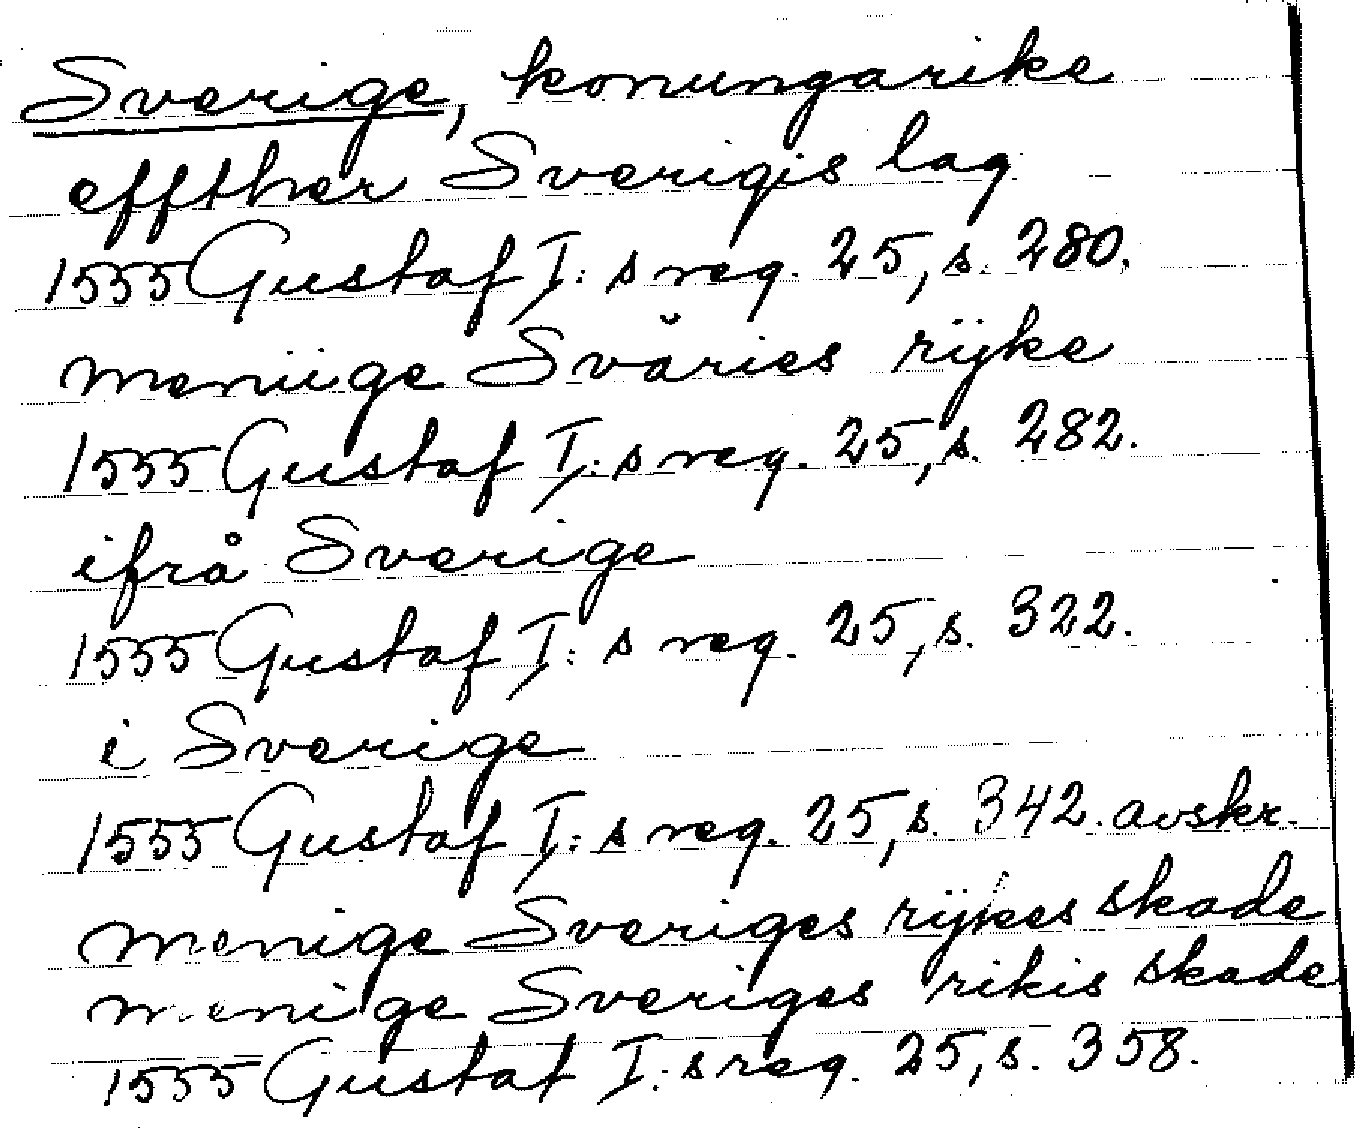 Sverige, konungarike
effther Sverigis lag
1555 Gustaf I:s reg. 25, s. 280.
meniige Svăries rÿke
1555 Gustaf I:s reg. 25, s. 282.
ifrå Sverige
1555 Gustaf I:s reg. 25, s. 322.
i Sverige
1555 Gustaf I:s reg. 25, s. 342. avskr.
menige Sveriges rÿkes skade
menige Sveriges rikis skade
1555 Gustaf I:s reg. 25, s. 358.